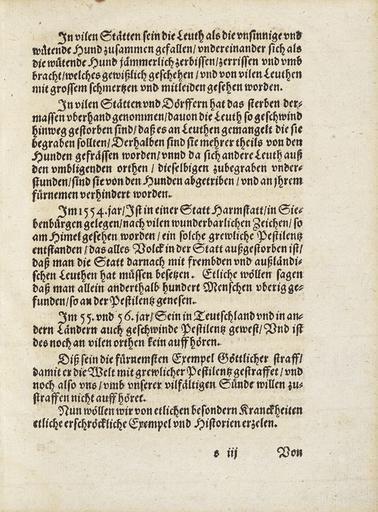 In vilen Stätten sein die Leuth als die vnsinnige vnd
wütende Hund zusammen gefallen/ vndereinander sich als
die wütende Hund jämmerlich zerbissen/ zerrissen vnd vmb
bracht/ welches gewißlich geschehen/ vnd von vilen Leuthen
mit grossem schmertzen vnd mitleiden gesehen worden.
In vilen Stätten vnd Dörffern hat das sterben der-
massen vberhand genommen/ dauon die Leuth so geschwind
hinweg gestorben sind/ daß es an Leuthen gemangelt die sie
begraben sollten/ Derhalben sind sie mehrer theils von den
Hunden gefrässen worden/ vnnd da sich andere Leuth auß
den vmbligenden orthen / dieselbigen zubegraben vnder-
stunden/ sind sie von den Hunden abgetriben / vnd an jhrem
fürnemen verhindert worden.
Im 1554. jar/ Ist in einer Statt Harmstatt/ in Sie-
benbürgen gelegen/ nach vilen wunderbarlichen Zeichen/ so
am Himel gesehen worden/ ein solche grewliche Pestilentz
entstanden / das alles Volck in der Statt außgestorben ist/
daß man die Statt darnach mit frembden vnd außländi-
schen Leuthen hat müssen besetzen. Etliche wöllen sagen
daß man allein anderthalb hundert Menschen vberig ge-
funden/ so an der Pestilentz genesen.
Im 55. vnd 56. jar/ Sein in Teutschland vnd in an-
dern Ländern auch geschwinde Pestilentz gewest/ Vnd ist
des noch an vilen orthen kein auff hören.
Diß sein die fürnemsten Exempel Göttlicher straff/
damit er die Welt mit grewlicher Pestilentz gestraffet/ vnd
noch also vns/ vmb vnserer vilfältigen Sünde willen zu-
straffen nicht auff höret.
Nun wöllen wir von etlichen besondern Kranckheiten
etliche erschröckliche Exempel vnd Historien erzelen.
iij Von